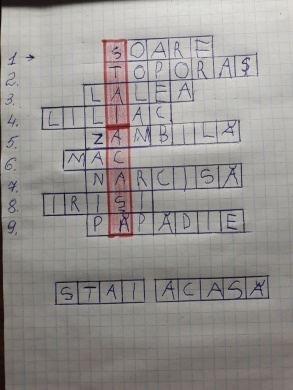 1 → SOARE
2. TOPORAȘ
3. LALEA
4. LILIAC
5. ZAMBILĂ
6. MAC
7. NARCISĂ
8. IRIȘI
9. PĂPĂDIE
STAI ACASĂ